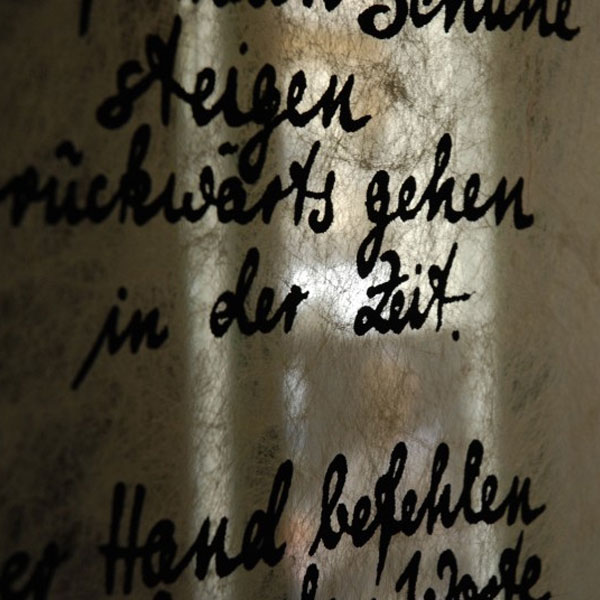 Schuhe
steigen
rückwärts gehen
in der Zeit.
er Hand befehlen
Worte